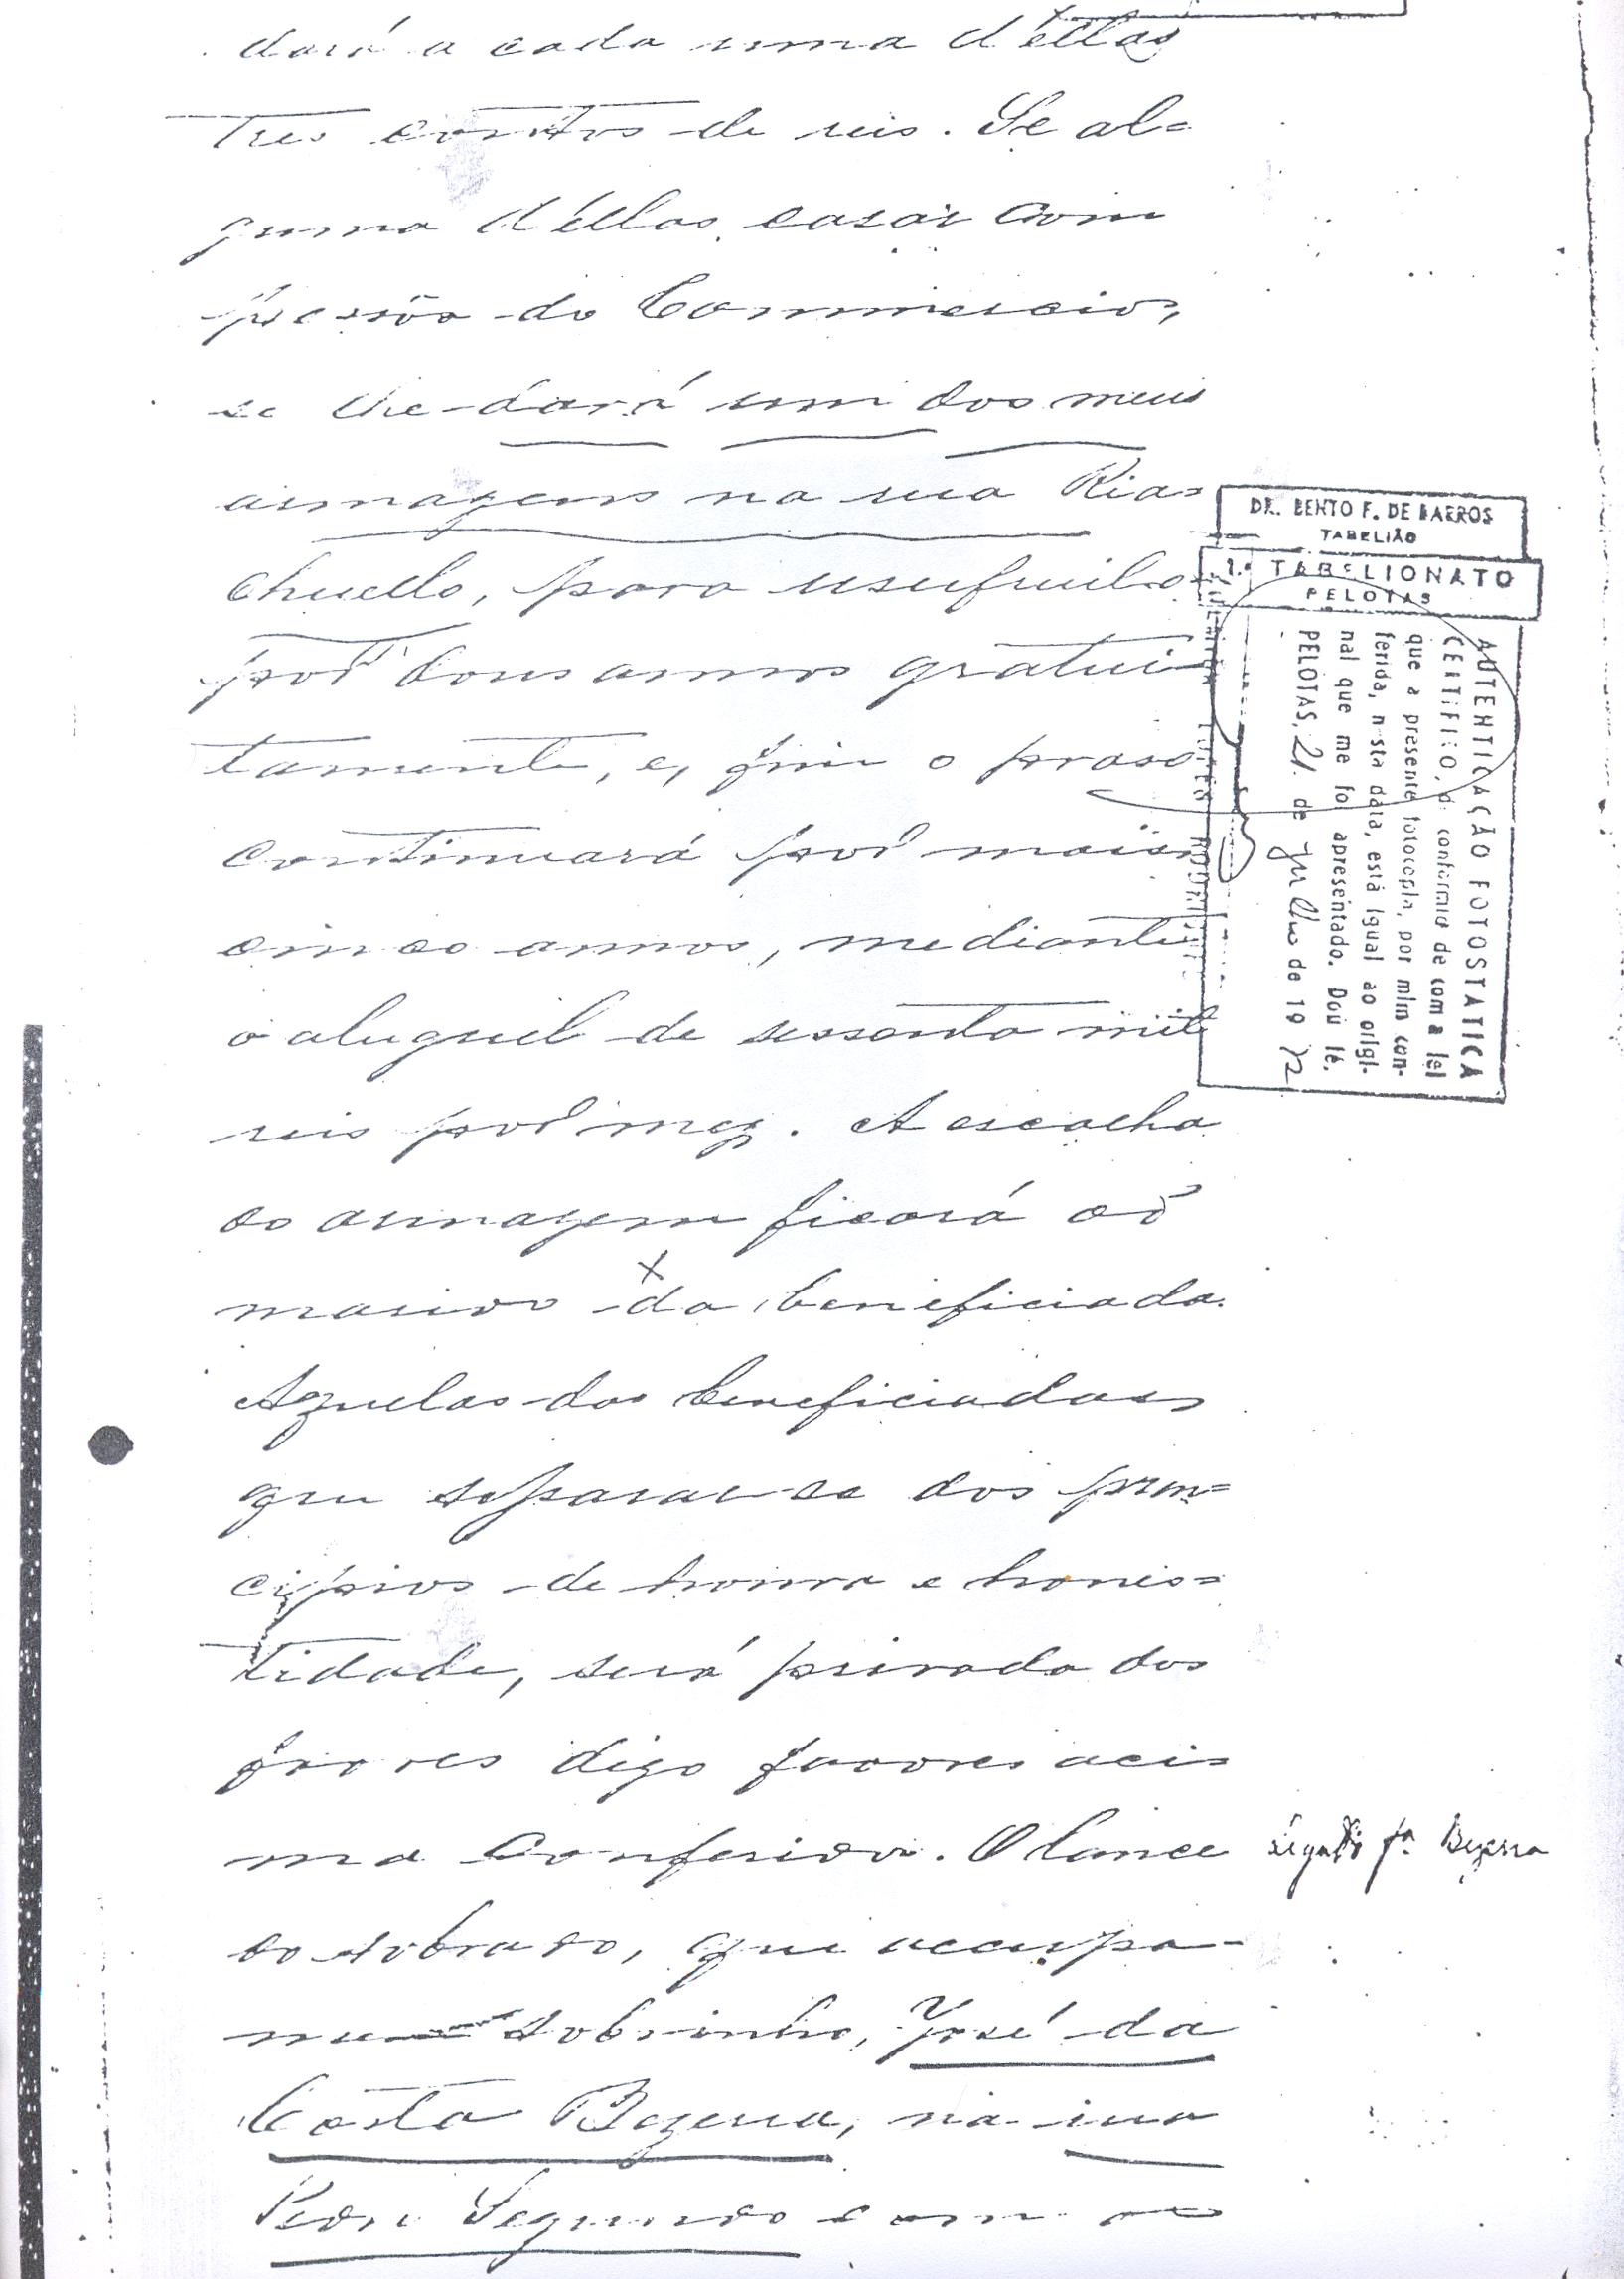 dará a cada uma d'ellas
tres contos de reis. Se al=
guma d'ellas casar com
pessôa do Commercio,
se lhe dará um dos meus
armazens na rua Ria=
chuello, para usufruil-o
por dous annos gratui=
tamente, e, fim o praso
continuará por mais
cinco annos, mediante
o aluguel de sessenta mil
reis por mez. A escolha
do armazem ficará ao
marido da beneficiada.
Aquelas das beneficiadas
que separar-se dos prin=
cipios de honra e hones=
tidade, será privada dos
favores digo favores aci=
ma conferidos. O lance
do sobrado, que occupa
meu sobrinho, José da
Costa Bezerra, na rua
Pedro Segundo com
DR. BENTO F. DE BARROS
TABELIÃO
1.º TABELIONATO
PELOTAS
AUTENTICAÇÃO FOTOSTATICA
CERTIFICO, de conformidade com a lei
que a presente fotocopia, por mim con-
ferida, nesta data, está igual ao origi-
nal que me foi apresentado. Dou fé.
PELOTAS, 21 de Julho de 19 72
legado pª Bezerra